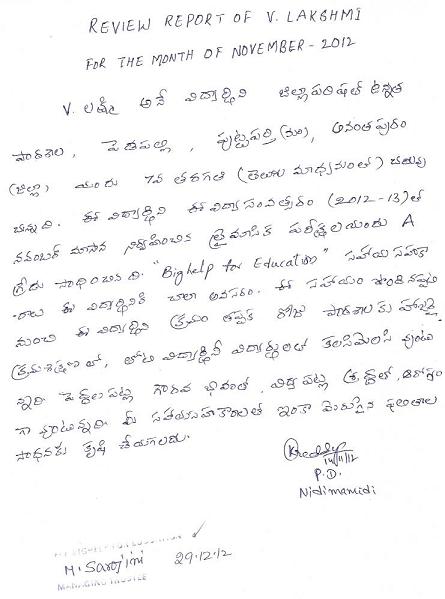 REVIEW REPORT OF V. LAKSHMI
FOR THE MONTH OF NOVEMBER - 2012
V. లక్ష్మి అనే విద్యార్థిని జిల్లాపరిషత్ ఉన్నత
పాఠశాల, పెడపల్లి, పుట్టపర్తి (మం), అనంతపురం
(జిల్లా) యందు 7వ తరగతి (తెలుగు మాధ్యమంలో) చదువు
చున్నది. ఈ విద్యార్థిని ఈ విద్యాసంవత్సరం (2012-13)లో
నవంబర్ మాసాన నిర్వహించిన త్రైమాసిక పరీక్షలయందు A
గ్రేడు సాధించినది. "Bighelp for Education" సహాయ సహకా
రాలు ఈ విద్యార్థినికి చాలా అవసరం. ఈ సహాయం పొందినప్పటి
నుంచి ఈ విద్యార్థిని క్రమం తప్పక రోజు పాఠశాలకు హాజరై
క్రమశిక్షణతో, తోటి విద్యార్థినీ విద్యార్థులతో కలిసిమెలిసి వుంటు
న్నది. పెద్దలపట్ల గౌరవ భావంతో, విద్య పట్ల శ్రద్ధతో, ఆరోగ్యం
గా వుంటున్నది. మీ సహాయసహకారాలతో ఇంకా మెరుగైన ఫలితాల
సాధనకు కృషి చేయగలదు.
Kreddy
14/11/12
P.D.
Nidimamidi
M. Sarojini 29.12.12
MANAGING TRUSTEE